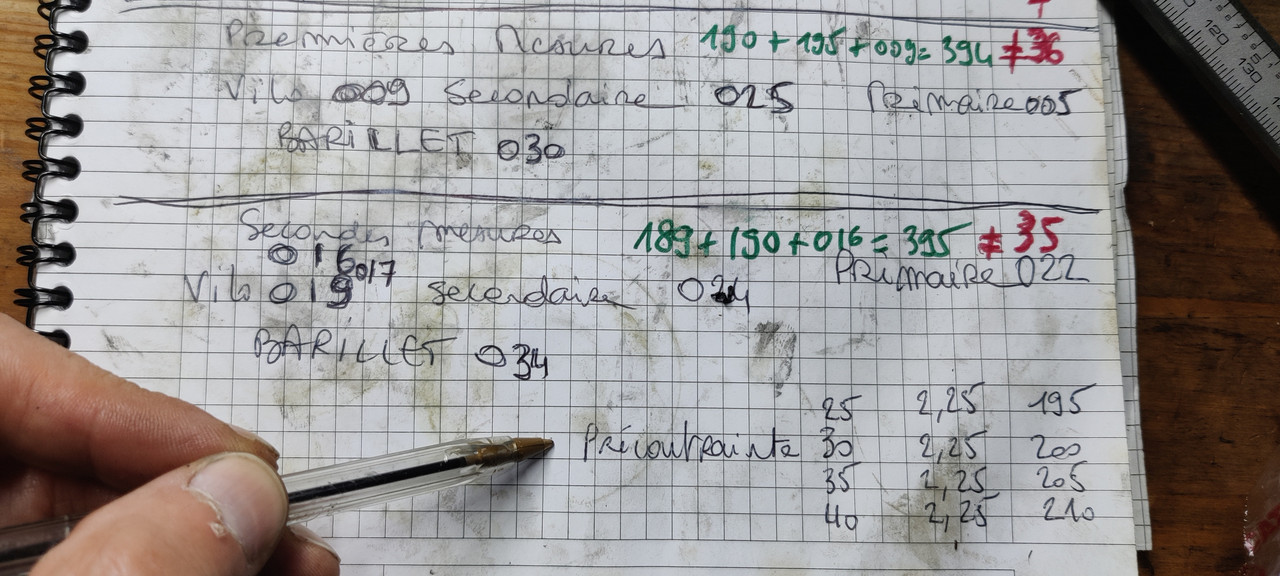 Premières Mesures 190 + 195 + 009 = 394 ≠ 36
Vilo 009 Secondaire : 025 Primaire 005
BARILLET 030
Secondes mesures 189 + 190 + 016 = 395 ≠ 35
016 017 Primaire 022
Vilo 019 secondaire 024
BARILLET 034
25 2,25 195
Précontrainte 30 2,25 200
35 2,25 205
40 2,25 210
120
130